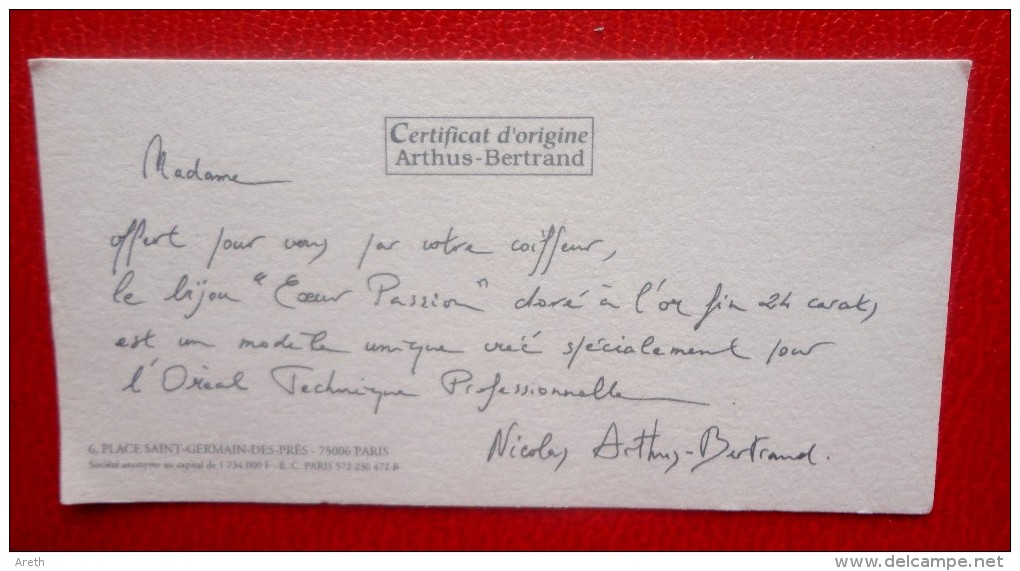 Certificat d'origine
Arthus-Bertrand
Madame
offert pour vous par votre coiffeur,
le bijou "Cœur Passion" doré à l'or fin 24 carats,
est un modèle unique créé spécialement pour
l'Oréal Technique Professionnelle
Nicolas Arthus-Bertrand.
6, PLACE SAINT-GERMAIN-DES-PRÉS - 75006 PARIS
Société anonyme au capital de 1 734 000 F - R. C. PARIS 572 230 472 B
Areth
www.delcampe.net